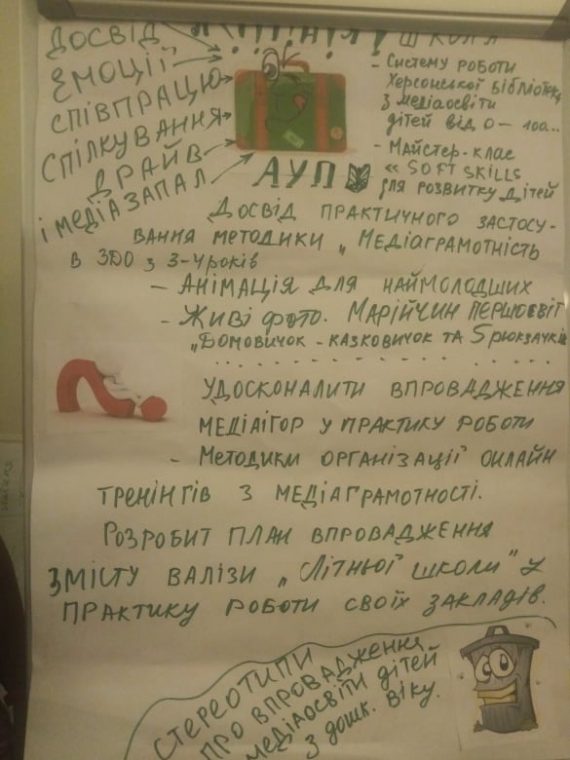 ДОСВІД
ЕМОЦІЇ
СПІВПРАЦЮ
СПІЛКУВАННЯ
ДРАЙВ
І МЕДІАЗАПАЛ
ШКОЛА
- Систему роботи
Херсонської бібліотеки
з медіаосвіти
дітей від 0 – 100..
- Майстер-клас
"SOFT SKILLS
для розвитку дітей
АУП
Досвід практичного застосу-
вання методики „Медіаграмотність
в ЗДО з 3-4 років
- Анімація для наймолодших
- Живі фото. Марійчин першосвіт
„Домовичок - казковичок та 5 рюкзачків
Удосконалити впровадження
медіаігор у практику роботи
- Методики організації онлайн
тренінгів з медіаграмотності.
Розробит план впровадження
змісту валізи „Літньої школи" у
практику роботи своїх закладів.
Стереотипи
про впровадження
медіаосвіти дітей
з дошк. віку.